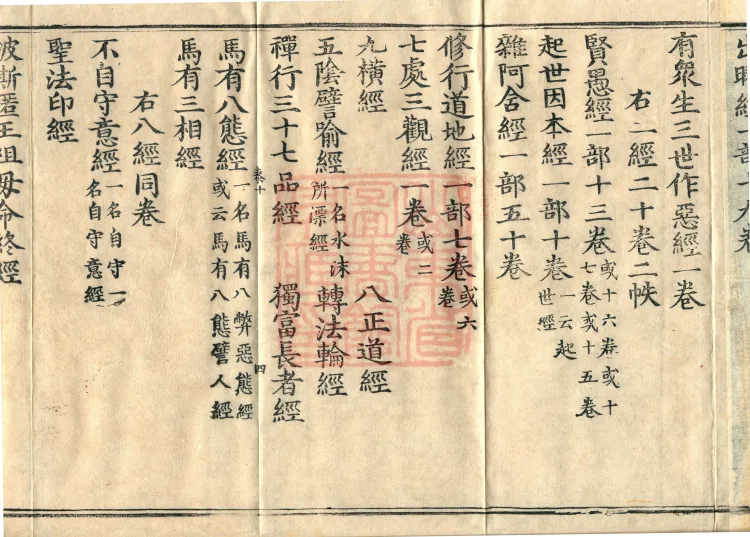 出曜經一部十九卷
有衆生三世作惡經一卷
右二經二十卷二帙
賢愚經一部十三卷或十六卷或十七卷或十五卷
起世因本經一部十卷一云起世經
雜阿含經一部五十卷
修行道地經一部七卷或六卷
七處三觀經一卷或二卷 八正道經
九橫經
五陰譬喻經一名水沫所漂經 轉法輪經
禪行三十七品經 獨富長者經
卷十 四
馬有八態經一名馬有八弊惡態經或云馬有八態譬人經
馬有三相經
右八經同卷
不自守意經一名自守一名自守意經
聖法印經
波斯匿王祖母命終經